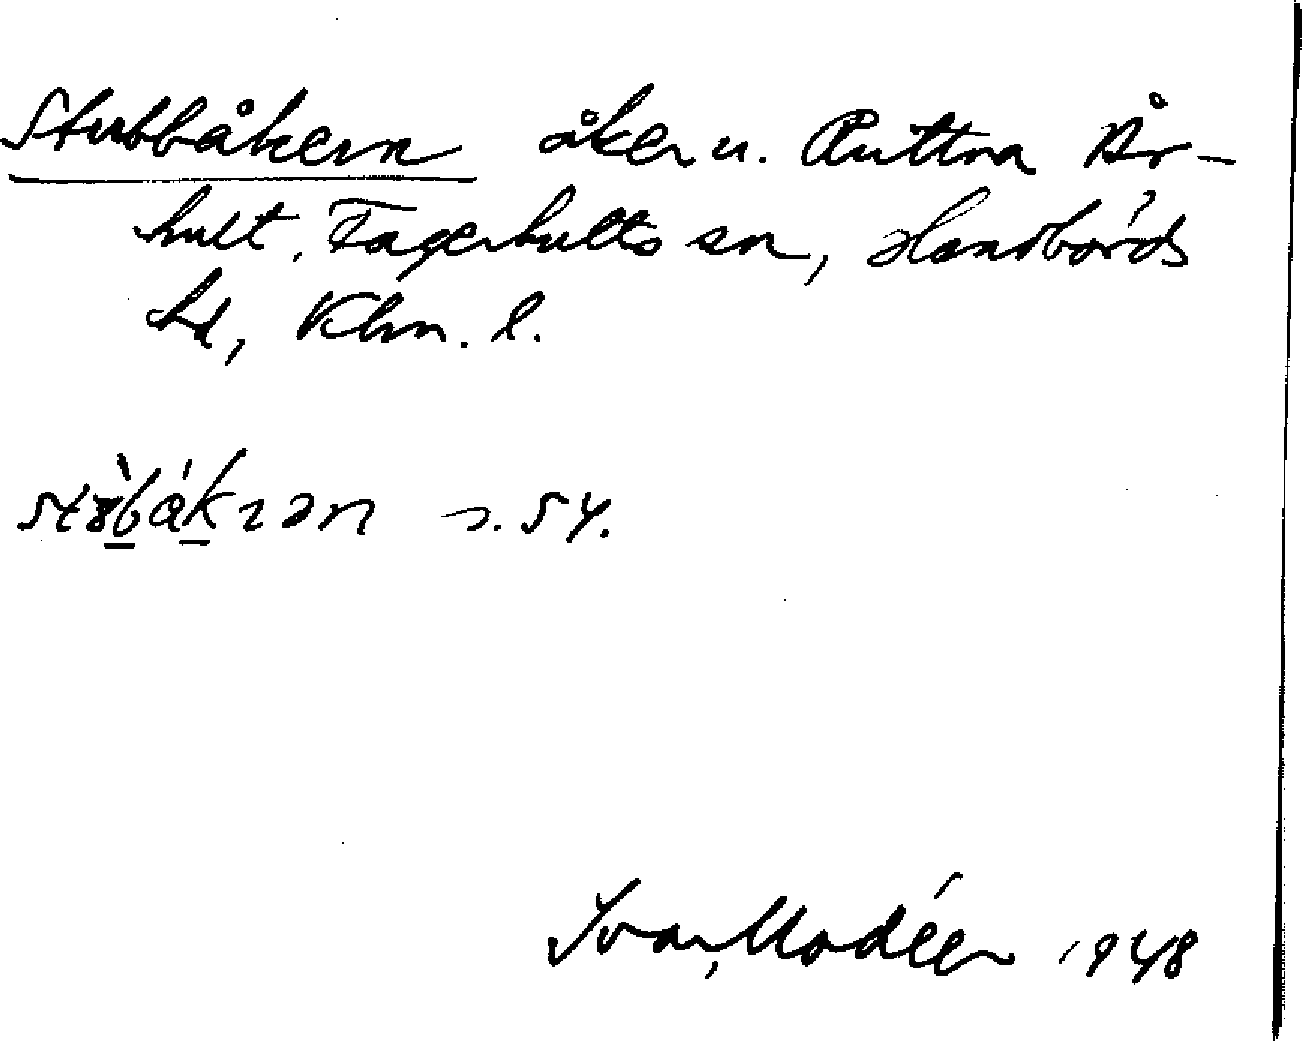 Stubbåkern åker u. Ruttna År-
hult, Fagerhults sn, Handbörds
hd, Klm. l.
s. 54.
Ivar Modéer 1948